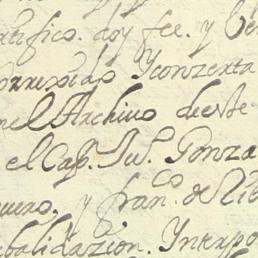 tifico. doy fee. y
Correxido Yconzerta
nel Archivo deeste
el Cap. Ju.º Gonza
uero. y fran.co de Rib
balidazion. Interpo